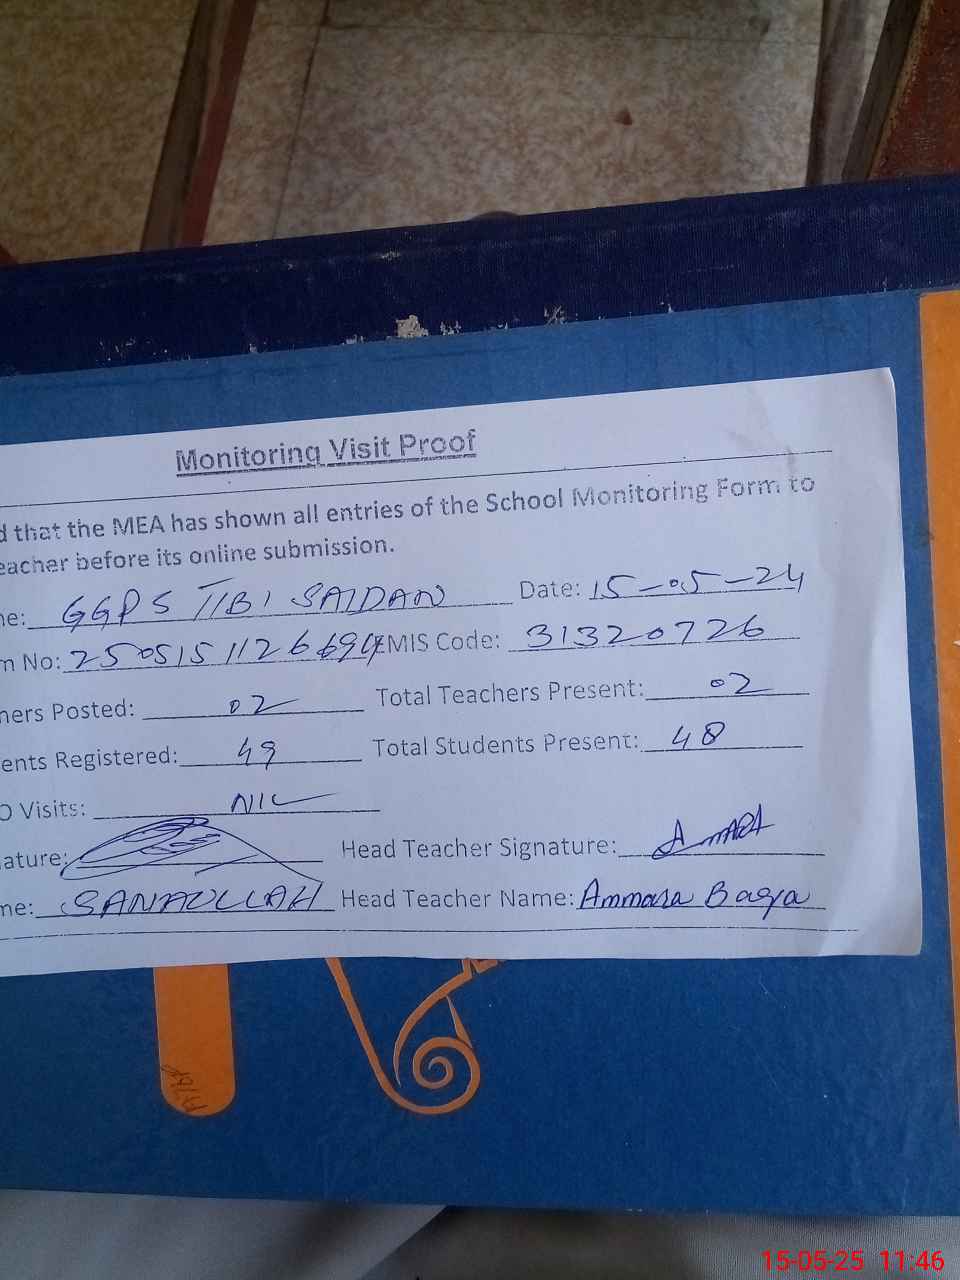 Monitoring Visit Proof
d that the MEA has shown all entries of the School Monitoring Form to
eacher before its online submission.
ne: GGPS TIBI SAIDAN Date: 15-05-24
m No: 25051511266 94 EMIS Code: 31320726
hers Posted: 02 Total Teachers Present: 02
ents Registered: 49 Total Students Present: 48
O Visits: NIL
ature: Head Teacher Signature:
me: SANAULLAH Head Teacher Name: Ammara
15-05-25 11:46